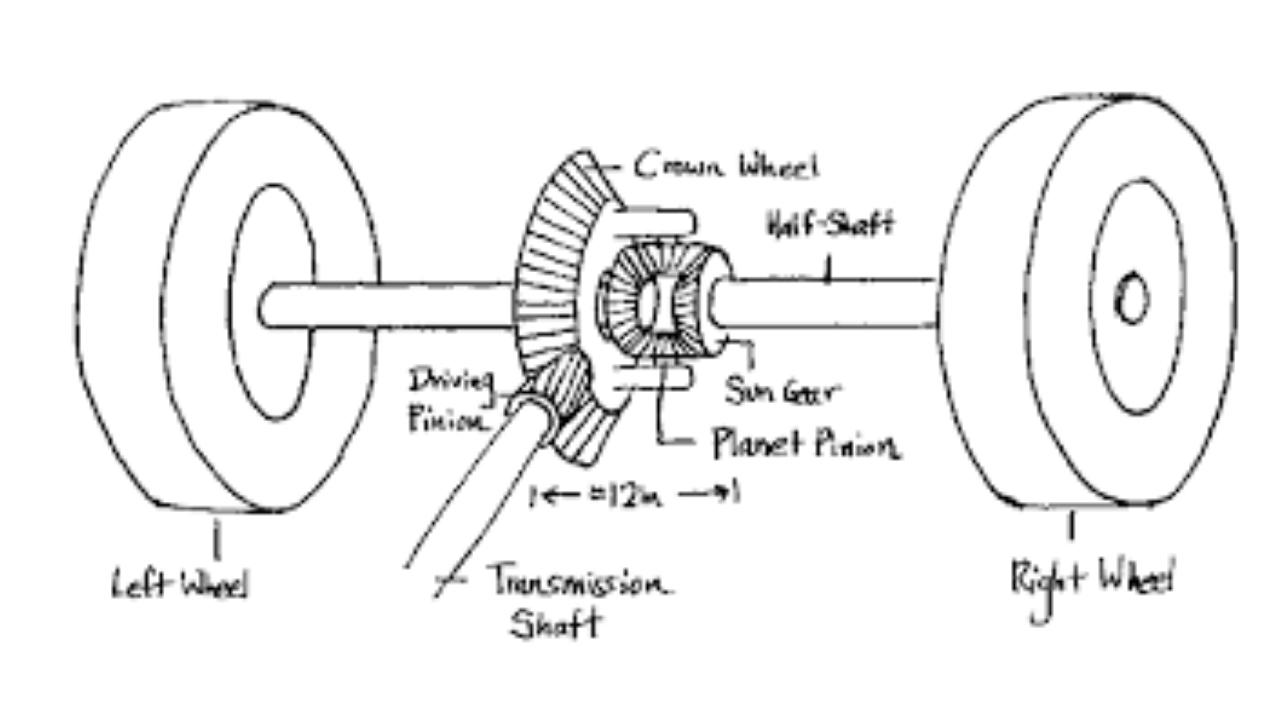 Crown Wheel
Half-Shaft
Driving
Pinion
Sun Gear
Planet Pinion
≈12in
Left Wheel
Transmission
Shaft
Right Wheel